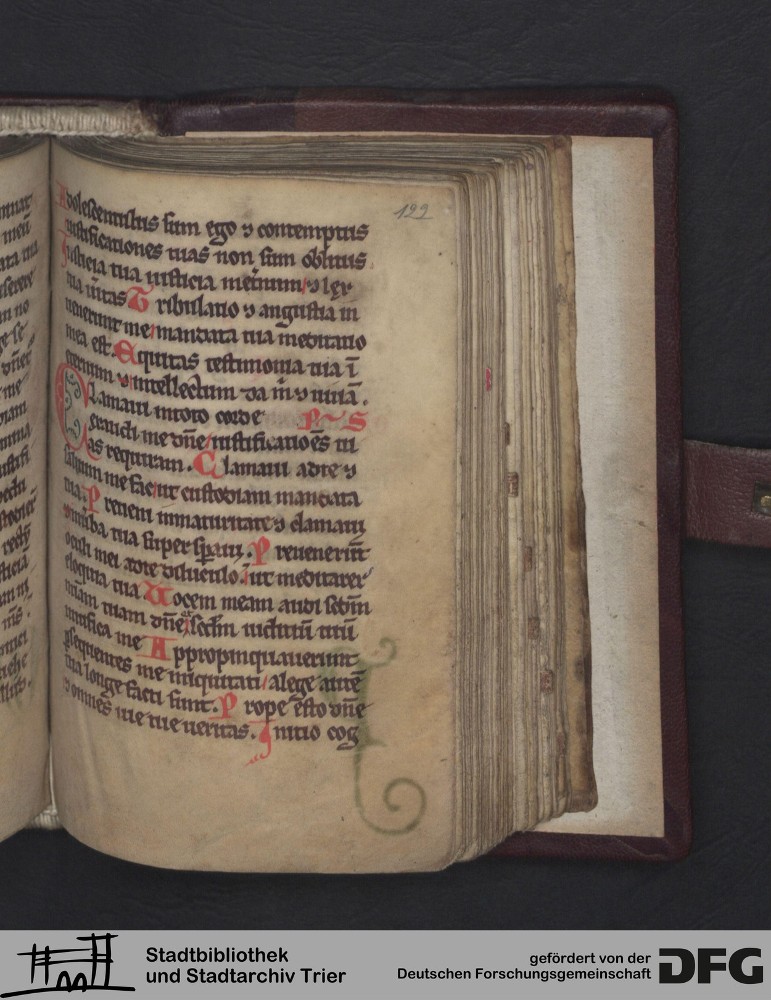 122
Adolescentulus sum ego ⁊ contemptus
iustificationes tuas non sum oblitus
Iusticia tua iusticia meternum / ⁊ lex
tua ūitas Tribulatio ⁊ angustia in
uenerunt me / mandata tua meditatio
mea est. Equitas testimonia tua ī
eternum ⁊ intellectum da m̄ ⁊ uiuā.
Clamaui intoto corde Pˢ
exaudi me dn̄e / iustificatiōes tu
as requiram. Clamaui adte ⁊
saluum me fac / ut custodiam mandata
tua. Preueni inmaturitate ⁊ clamaui
in uƀa tua supersperaui. Preuenerūt
oculi mei adte diluculo. / ut meditarer
eloquia tua Uocem meam audi scdm
miam tuam dn̄e / ⁊ scdm iudiciū tuū
uiuifica me Appropinquauerunt
ꝑsequentes me iniquitati / alege autē
tua longe facti sunt. Prope esto dn̄e
⁊ omnes uie tue ueritas. Initio cog
Stadtbibliothek
und Stadtarchiv Trier
gefördert von der
Deutschen Forschungsgemeinschaft
DFG